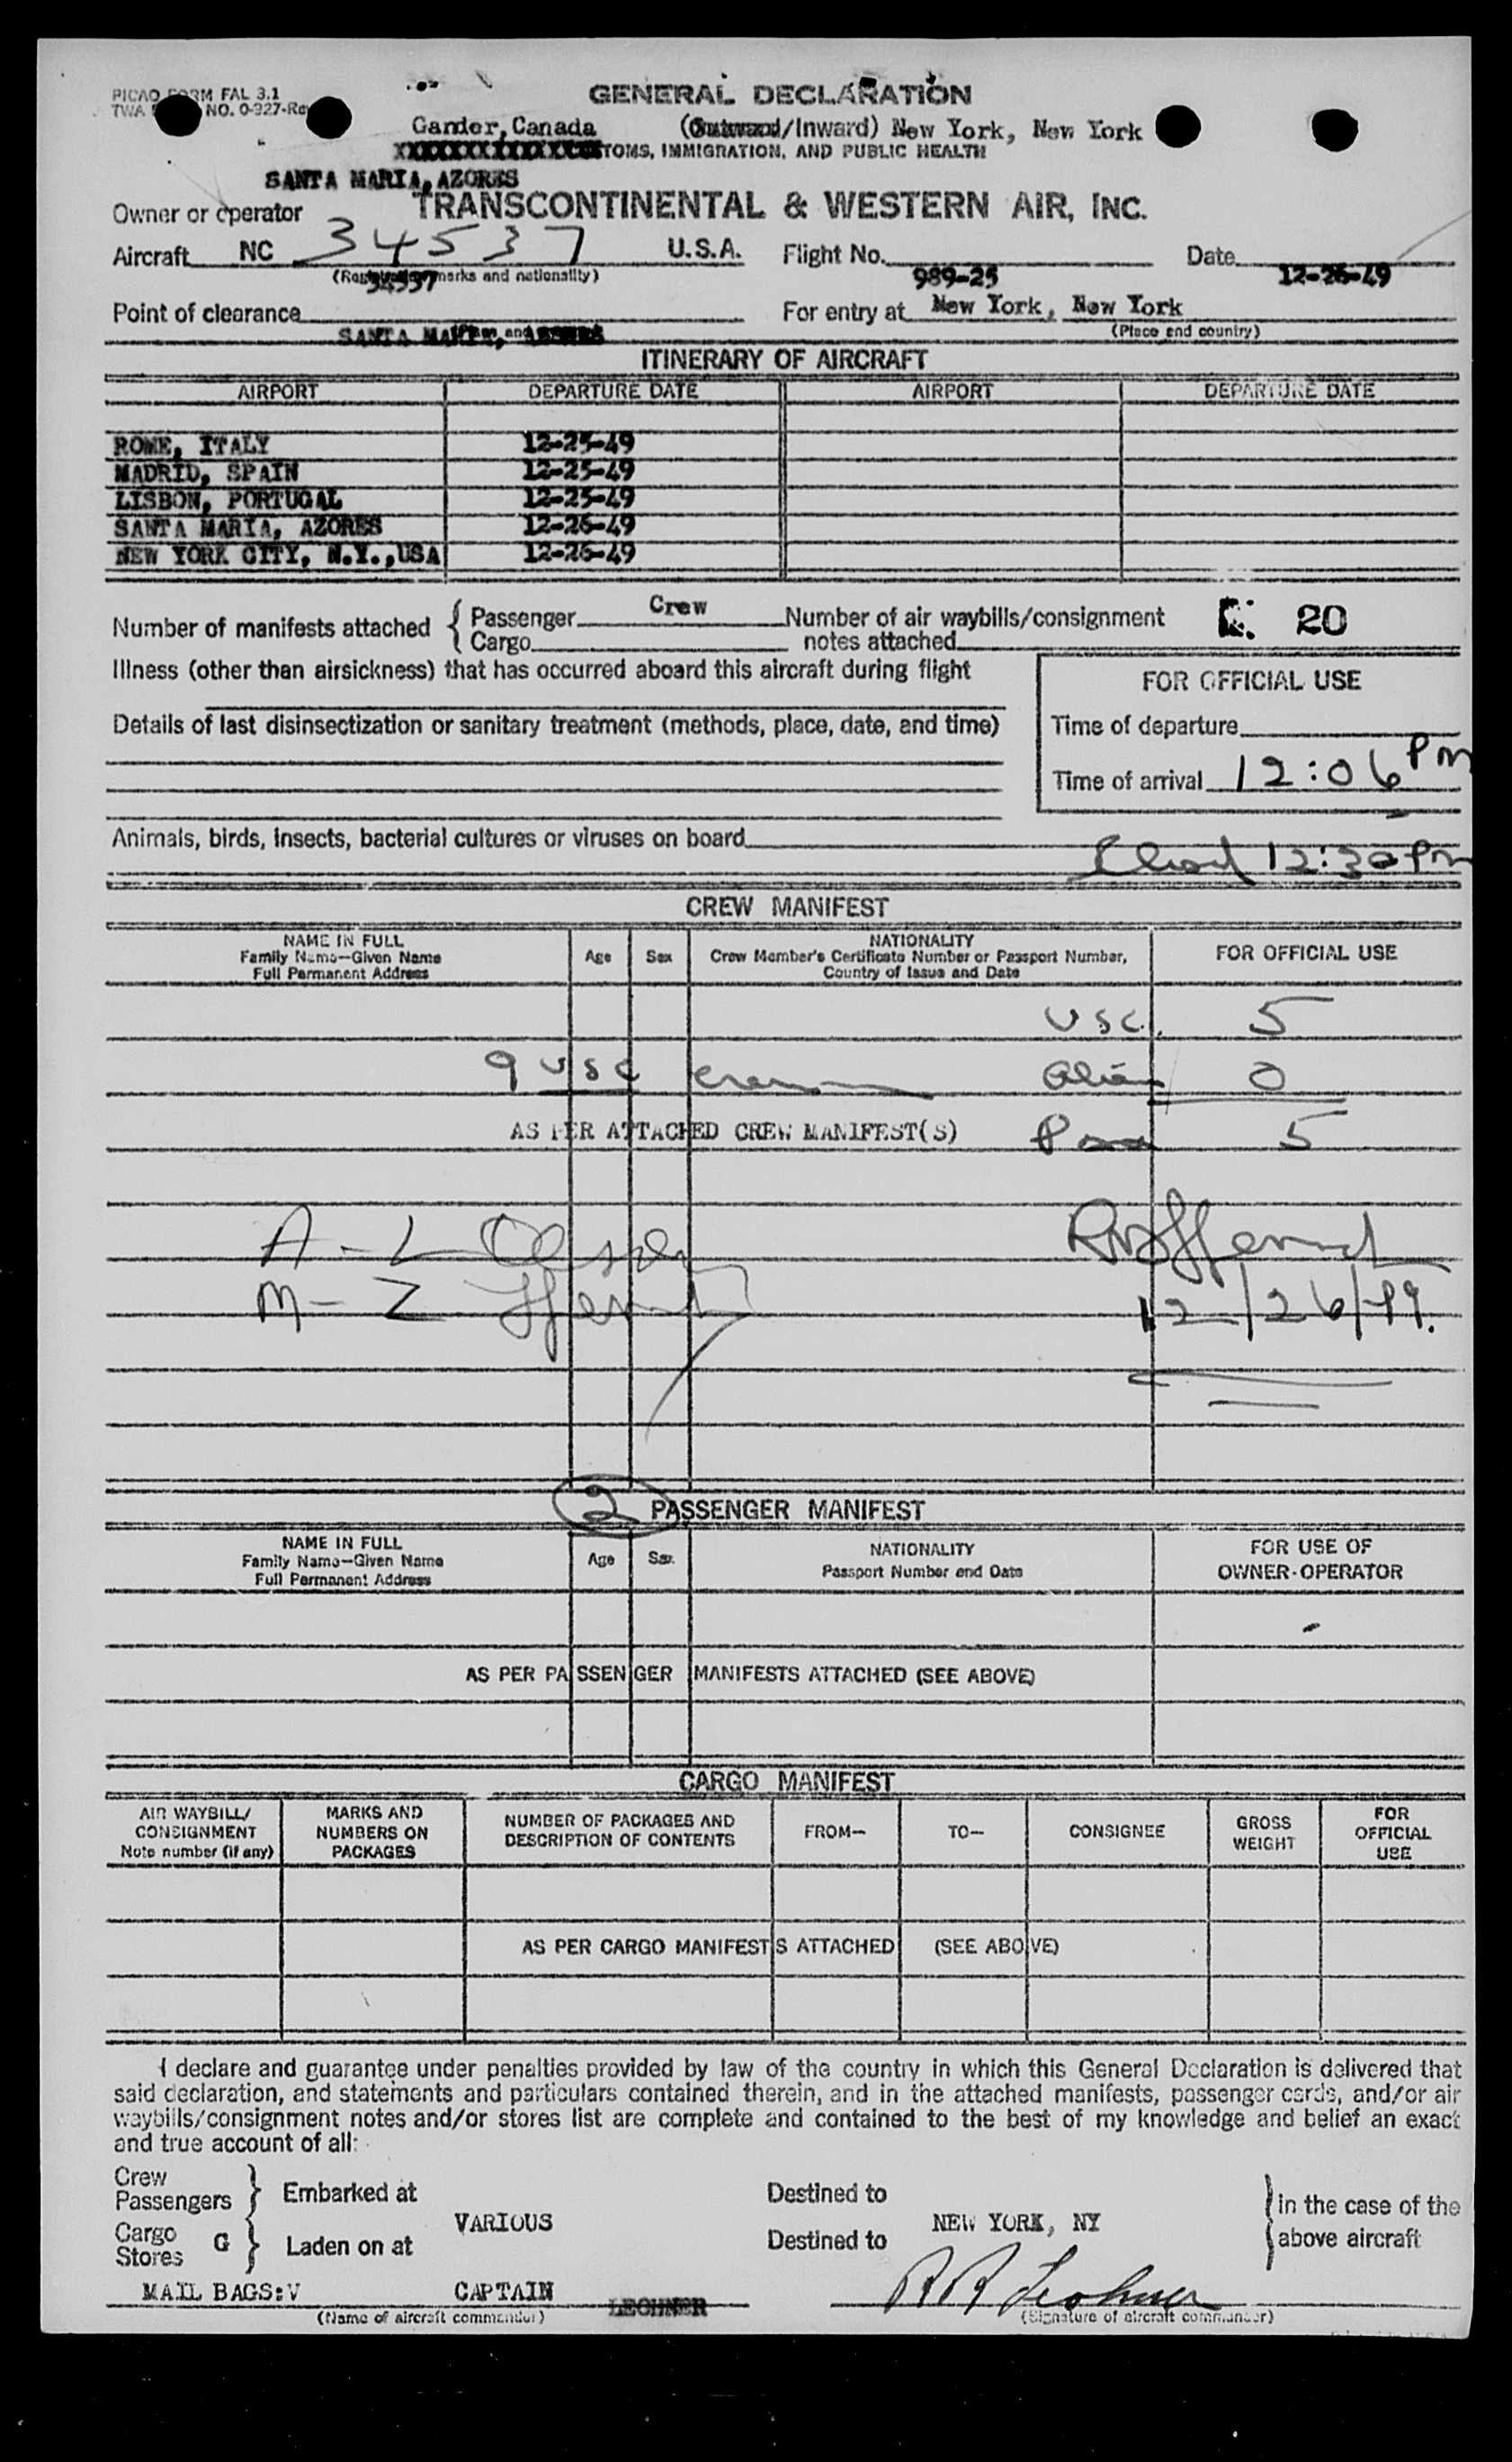 PICAO FORM FAL 3.1
TWA NO. 0-927-Rev
GENERAL DECLARATION
Gander, Canada (Outward/Inward) New York, New York
XXXXXXXXXXXXXXTOMS, IMMIGRATION, AND PUBLIC HEALTH
SANTA MARIA, AZORES
Owner or operator TRANSCONTINENTAL & WESTERN AIR, INC.
Aircraft NC 34537 U.S.A. Flight No. 989-25 Date 12-26-49
(Registration marks and nationality)
34537
Point of clearance SANTA MARIA, AZORES For entry at New York, New York
(Place and country)
ITINERARY OF AIRCRAFT
AIRPORT DEPARTURE DATE AIRPORT DEPARTURE DATE
ROME, ITALY 12-25-49
MADRID, SPAIN 12-25-49
LISBON, PORTUGAL 12-25-49
SANTA MARIA, AZORES 12-26-49
NEW YORK CITY, N.Y.,USA 12-26-49
Number of manifests attached { Passenger Crew Number of air waybills/consignment 20
Cargo notes attached
Illness (other than airsickness) that has occurred aboard this aircraft during flight
FOR OFFICIAL USE
Details of last disinsectization or sanitary treatment (methods, place, date, and time)
Time of departure
Time of arrival 12:06 PM
Animals, birds, insects, bacterial cultures or viruses on board
12:30 PM
CREW MANIFEST
NAME IN FULL
Family Name—Given Name
Full Permanent Address
Age Sex
NATIONALITY
Crew Member's Certificate Number or Passport Number,
Country of Issue and Date
FOR OFFICIAL USE
USC. 5
9 USC Alien 0
AS PER ATTACHED CREW MANIFEST(S) 5
A - L
M - Z
12/26/49.
2 PASSENGER MANIFEST
NAME IN FULL
Family Name—Given Name
Full Permanent Address
Age Sex
NATIONALITY
Passport Number and Date
FOR USE OF
OWNER-OPERATOR
AS PER PASSENGER MANIFESTS ATTACHED (SEE ABOVE)
CARGO MANIFEST
AIR WAYBILL/
CONSIGNMENT
Note number (if any)
MARKS AND
NUMBERS ON
PACKAGES
NUMBER OF PACKAGES AND
DESCRIPTION OF CONTENTS
FROM—
TO—
CONSIGNEE
GROSS
WEIGHT
FOR
OFFICIAL
USE
AS PER CARGO MANIFESTS ATTACHED (SEE ABOVE)
I declare and guarantee under penalties provided by law of the country in which this General Declaration is delivered that
said declaration, and statements and particulars contained therein, and in the attached manifests, passenger cards, and/or air
waybills/consignment notes and/or stores list are complete and contained to the best of my knowledge and belief an exact
and true account of all:
Crew
Passengers } Embarked at Destined to } in the case of the
VARIOUS NEW YORK, NY
Cargo G } Laden on at Destined to above aircraft
Stores
MAIL BAGS:V CAPTAIN LECHNER R R Lechner
(Name of aircraft commander) (Signature of aircraft commander)